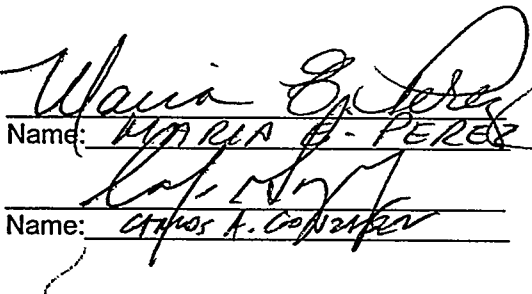 Maria E. Perez
Name: MARIA E. PEREZ
Name: CARLOS A. GONZALEZ